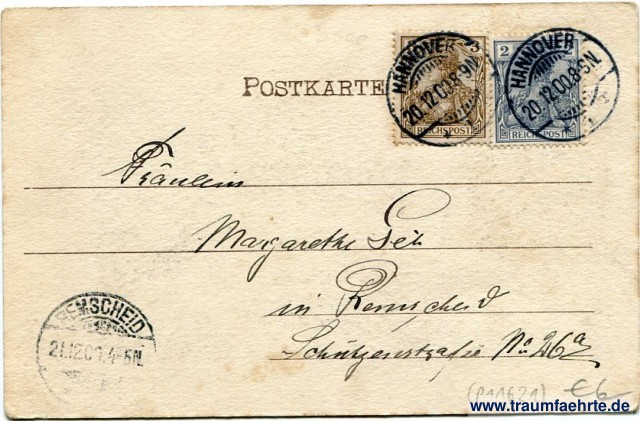 3
2
HANNOVER
20.12.00.8-9N.
REICHSPOST
HANNOVER
20.12.00.8-9N.
REICHSPOST
POSTKARTE
Fräulein
Margarethe
in Remscheid
Schützenstraße No. 26a
REMSCHEID
21.12.00. 4-5N.
(P11621) €6
www.traumfaehrte.de